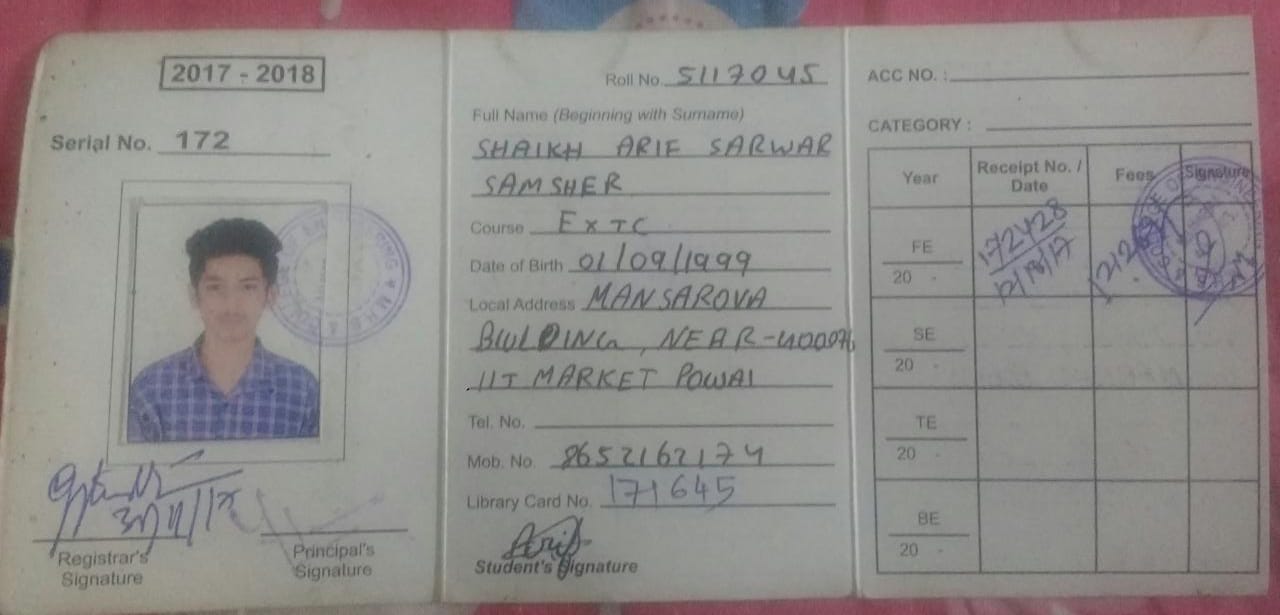 2017 - 2018
Serial No. 172
Registrar's Signature
Principal's Signature
Roll No. 5117045
Full Name (Beginning with Surname)
SHAIKH ARIF SARWAR
SAMSHER
Course EXTC
Date of Birth 01/09/1999
Local Address MANSAROVA
BUILDING, NEAR-400076
IIT MARKET POWAI
Tel. No.
Mob. No. 8652162174
Library Card No. 171645
Arif
Student's Signature
ACC NO. :
CATEGORY :
Year Receipt No. / Date Fees Signature
FE 172428
20 -
SE
20 -
TE
20 -
BE
20 -